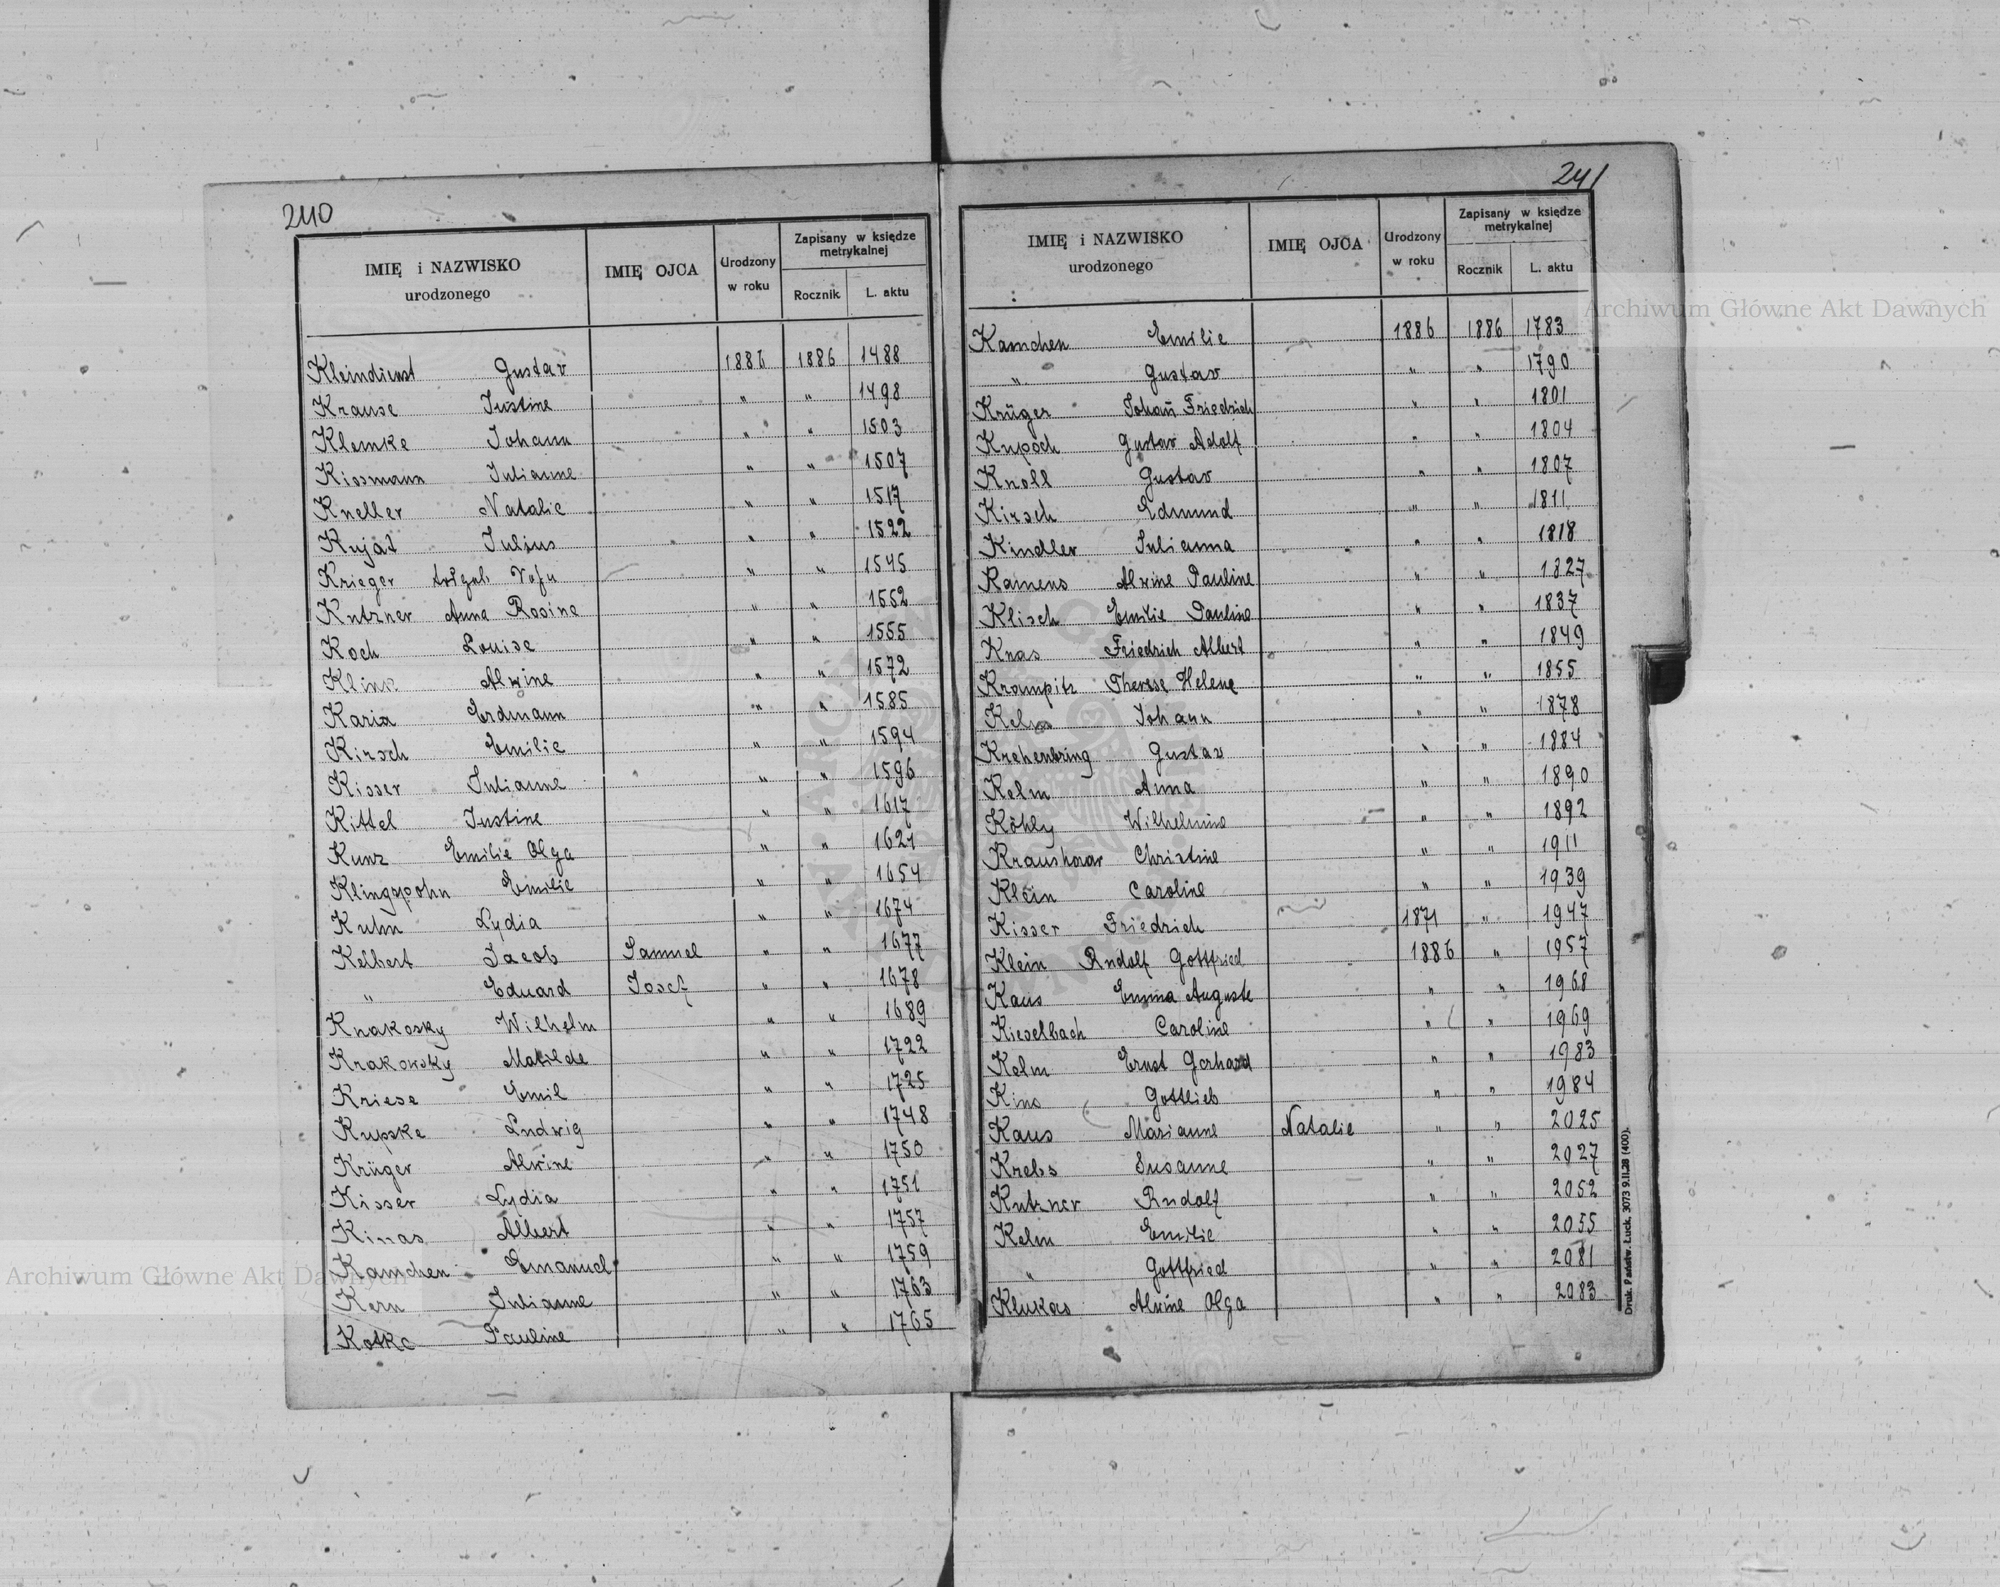 240
IMIĘ i NAZWISKO urodzonego | IMIĘ OJCA | Urodzony w roku | Zapisany w księdze metrykalnej
Rocznik | L. aktu
Kleindienst Gustav 1886 1886 1488
Krause Justine " " 1498
Klemke Johann " " 1503
Kissmann Julianne " " 1507
Kneller Natalie " " 1517
Kujat Julius " " 1522
Krieger " " 1545
Kutzner Anna Rosine " " 1552
Koch Louise " " 1555
Klink Alwine " " 1572
Karia Erdmann " " 1585
Kirsch Emilie " " 1594
Kisser Julianne " " 1596
Kittel Justine " " 1617
Kunz Emilie Olga " " 1621
Klingspohn Emilie " " 1654
Kuhn Lydia " " 1674
Kelbert Jacob Samuel " " 1677
" Eduard Josef " " 1678
Knakosky Wilhelm " " 1689
Krakowsky Matilde " " 1722
Kriese Emil " " 1725
Kupske Ludwig " " 1748
Krüger Alwine " " 1750
Kisser Lydia " " 1751
Kinas Albert " " 1757
Kamchen Emanuel " " 1759
Kern Julianne " " 1763
Kotke Pauline " " 1765
241
IMIĘ i NAZWISKO urodzonego | IMIĘ OJCA | Urodzony w roku | Zapisany w księdze metrykalnej
Rocznik | L. aktu
Kamchen Emilie 1886 1886 1783
" Gustav " " 1790
Krüger Johan̄ Friedrich " " 1801
Kupoch Gustav Adolf " " 1804
Knoll Gustav " " 1807
Kirsch Edmund " " 1811
Kindler Julianna " " 1818
Rainens Alwine Pauline " " 1827
Klisch Emilie Pauline " " 1837
Knas Friedrich Albert " " 1849
Krampitz Therese Helene " " 1855
Johann " " 1878
Krehenbring Gustav " " 1884
Kelm Anna " " 1890
Köhly Wilhelmine " " 1892
Kraushaar Christine " " 1911
Klein Caroline " " 1939
Kisser Friedrich 1871 " 1947
Klein Rudolf Gottfried 1886 " 1957
Kaus Emma Auguste " " 1968
Kieselbach Caroline " " 1969
Kelm Ernst Gerhard " " 1983
Kins Gottlieb " " 1984
Kaus Marianne Natalie " " 2025
Krebs Susanne " " 2027
Kutzner Rudolf " " 2052
Kelm Emilie " " 2055
" Gottfried " " 2081
Klukas Alwine Olga " " 2083
Druk. Państw. Łuck. 3073 9.II.28 (400).
Archiwum Główne Akt Dawnych
Archiwum Główne Akt Dawnych